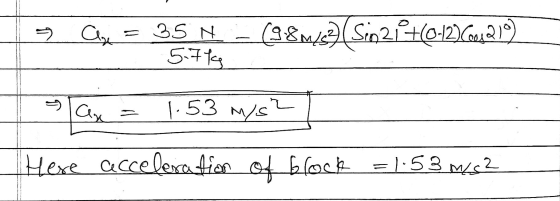 ⇒ ax = 35 N / 5.7 kg - (9.8 m/s²)(Sin21°+(0.12)Cos21°)
⇒ ax = 1.53 m/s²
Here acceleration of block = 1.53 m/s²